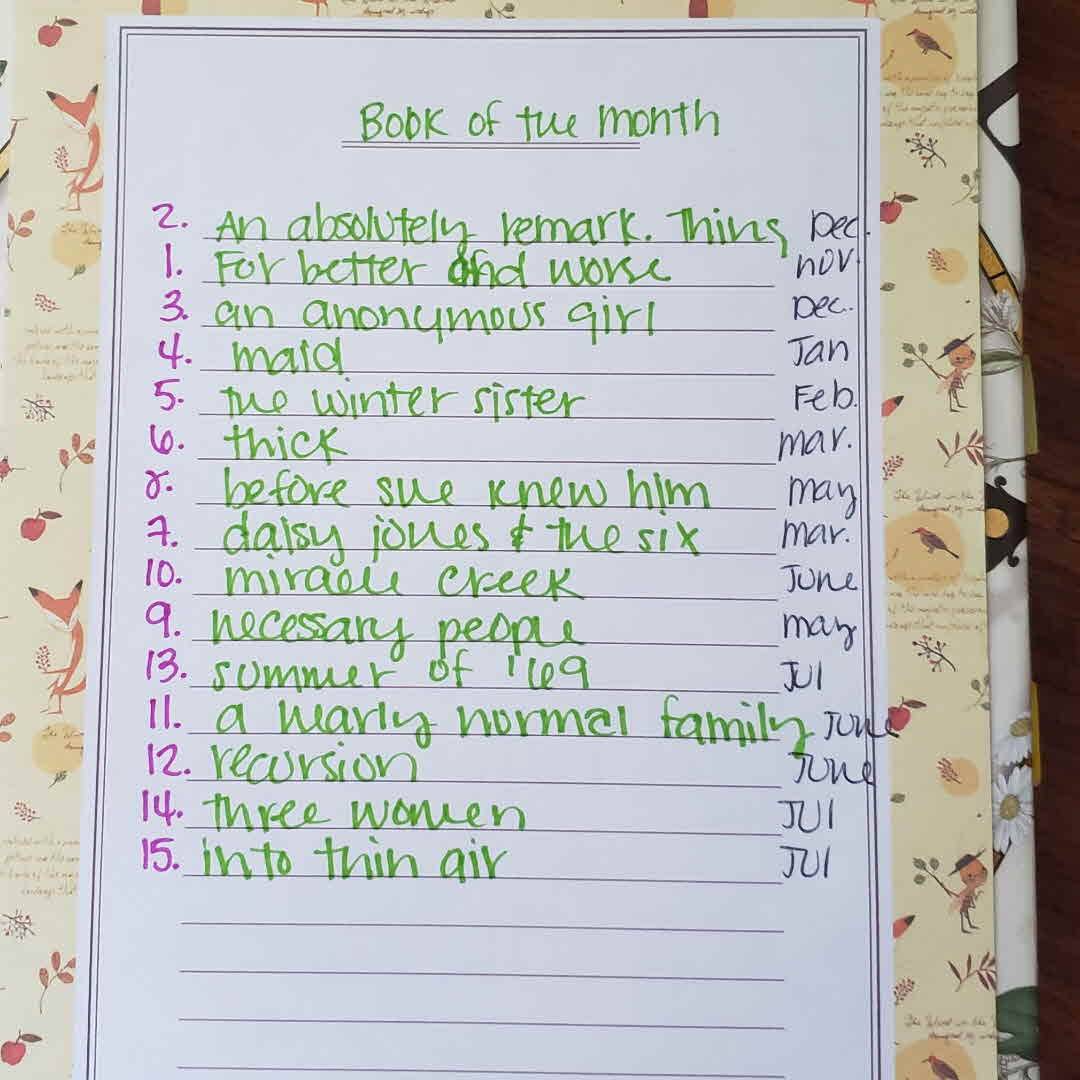 Book of the month
2. An absolutely remark. Thing Dec.
1. For better and worse nov.
3. an anonymous girl Dec.
4. maid Jan
5. the winter sister Feb.
6. thick mar.
8. before she knew him may
7. daisy jones & the six mar.
10. miracle creek June
9. necessary people may
13. summer of '69 JUl
11. a nearly normal family June
12. recursion June
14. three women JUl
15. into thin air JUl